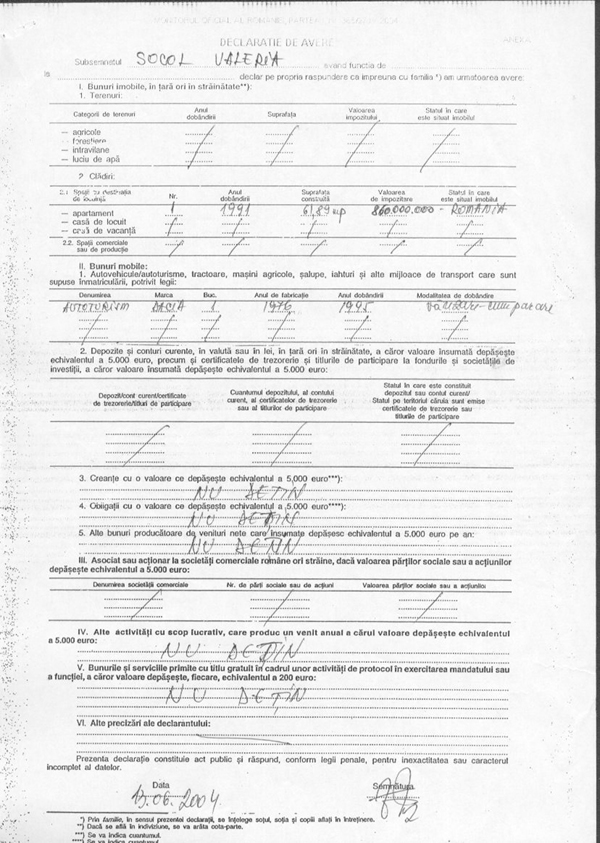 MONITORUL OFICIAL AL ROMÂNIEI, PARTEA I
ANEXA
DECLARAȚIE DE AVERE
Subsemnatul SOCOL VALERIA având funcția de
la declar pe propria răspundere ca împreuna cu familia *) am urmatoarea avere:
I. Bunuri imobile, în țară ori în străinătate**):
1. Terenuri:
Categorii de terenuri Anul dobândirii Suprafața Valoarea impozitului Statul în care este situat imobilul
— agricole
— forestiere
— intravilane
— luciu de apă
2. Clădiri:
2.1 Spații cu destinația de locuință Nr. Anul dobândirii Suprafața construită Valoarea de impozitare Statul în care este situat imobilul
— apartament 1 1991 61,89 mp 860.000.000 - ROMANIA
— casă de locuit
— casă de vacanță
2.2. Spații comerciale sau de producție
II. Bunuri mobile:
1. Autovehicule/autoturisme, tractoare, mașini agricole, șalupe, iahturi și alte mijloace de transport care sunt
supuse înmatriculării, potrivit legii:
Denumirea Marca Buc. Anul de fabricație Anul dobândirii Modalitatea de dobândire
AUTOTURISM DACIA 1 1976 1995 vânzare-cumpărare
2. Depozite și conturi curente, în valută sau în lei, în țară ori în străinătate, a căror valoare însumată depășește
echivalentul a 5.000 euro, precum și certificatele de trezorerie și titlurile de participare la fondurile și societățile de
investiții, a căror valoare însumată depășește echivalentul a 5.000 euro:
Depozit/cont curent/certificate de trezorerie/titluri de participare Cuantumul depozitului, al contului curent, al certificatelor de trezorerie sau al titlurilor de participare Statul în care este constituit depozitul sau contul curent/ Statul pe teritoriul căruia sunt emise certificatele de trezorerie sau titlurile de participare
3. Creanțe cu o valoare ce depășește echivalentul a 5.000 euro***):
NU DEȚIN
4. Obligații cu o valoare ce depășește echivalentul a 5.000 euro****):
NU DEȚIN
5. Alte bunuri producătoare de venituri nete care însumate depășesc echivalentul a 5.000 euro pe an:
NU DEȚIN
III. Asociat sau acționar la societăți comerciale române ori străine, dacă valoarea părților sociale sau a acțiunilor
depășește echivalentul a 5.000 euro:
Denumirea societății comerciale Nr. de părți sociale sau de acțiuni Valoarea părților sociale sau a acțiunilor
IV. Alte activități cu scop lucrativ, care produc un venit anual a cărui valoare depășește echivalentul
a 5.000 euro:
NU DEȚIN
V. Bunurile și serviciile primite cu titlu gratuit în cadrul unor activități de protocol în exercitarea mandatului sau
a funcției, a căror valoare depășește, fiecare, echivalentul a 200 euro:
NU DEȚIN
VI. Alte precizări ale declarantului:
Prezenta declarație constituie act public și răspund, conform legii penale, pentru inexactitatea sau caracterul
incomplet al datelor.
Data Semnătura
13.06.2004
*) Prin familie, în sensul prezentei declarații, se înțelege soțul, soția și copiii aflați în întreținere.
**) Dacă se află în indiviziune, se va arăta cota-parte.
***) Se va indica cuantumul.
****) Se va indica cuantumul.